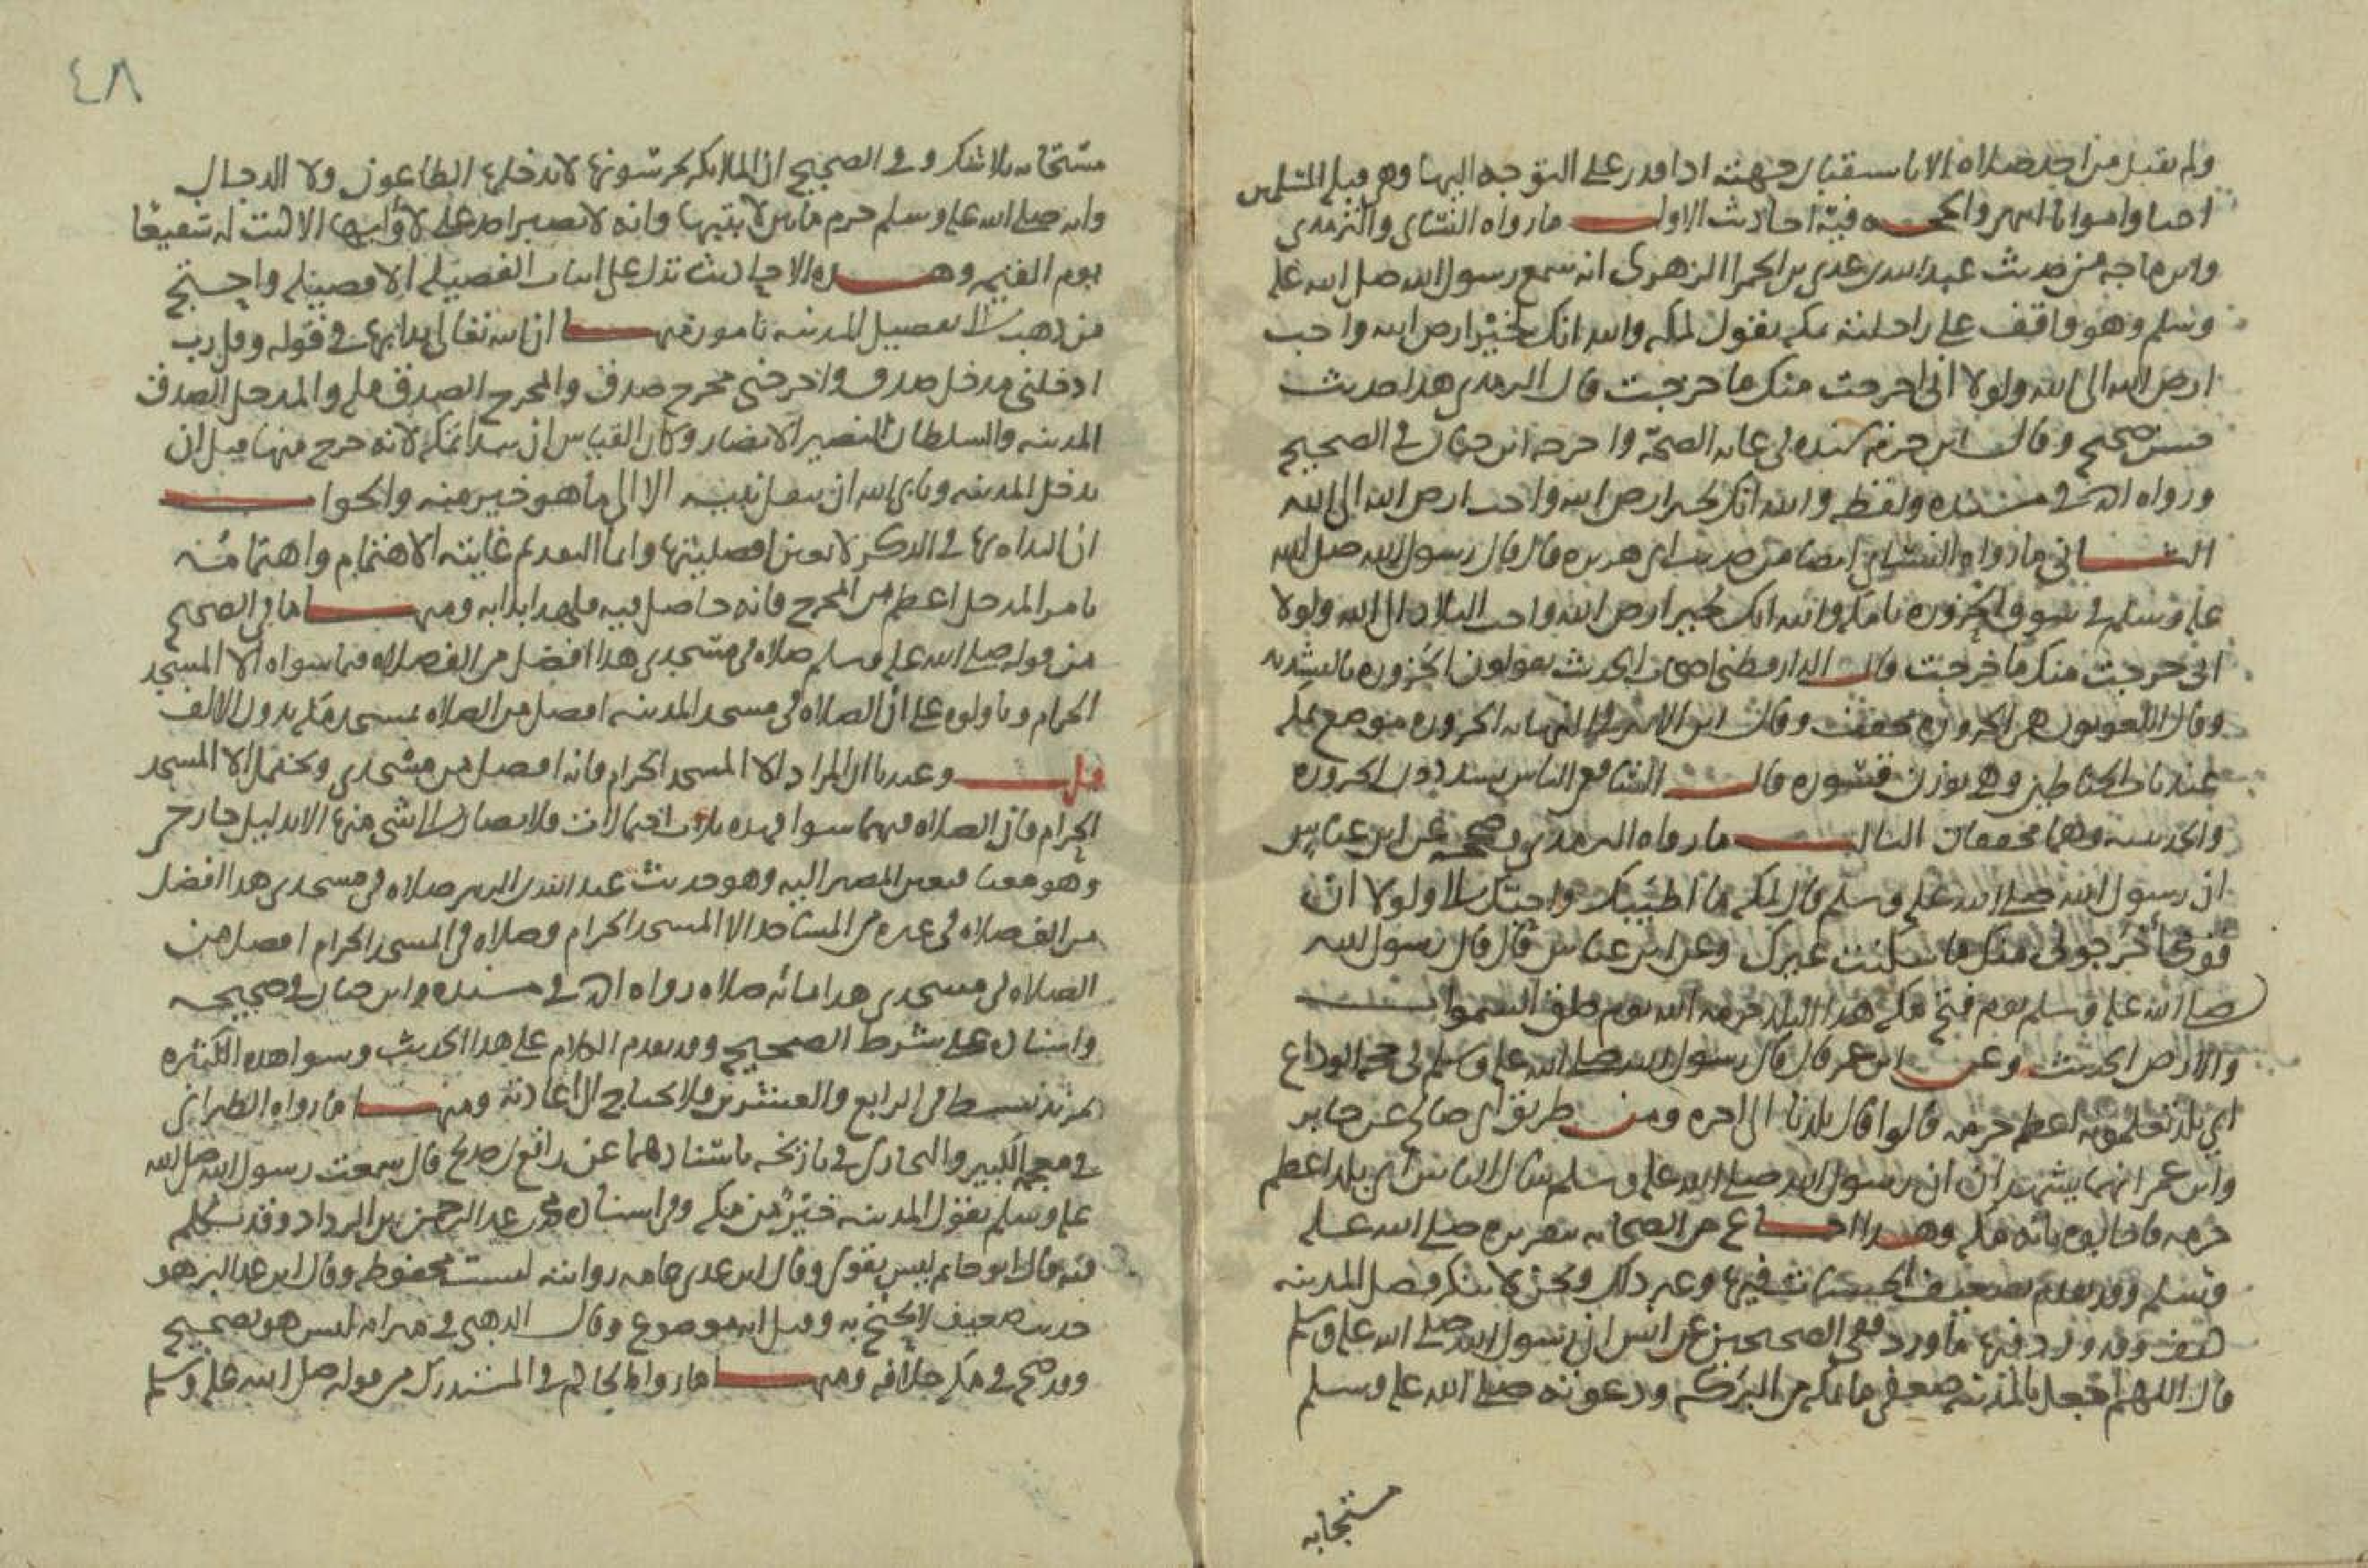 ولم يقبل من احد صلاه الا باستقبال جهته اذا قدر على التوجه اليها وهي قبلة المسلمين
احيا وامواتا انتهى والحجه فيه احاديث الاول ما رواه النسائى والترمذى
وابن ماجه من حديث عبد الله بن عدى بن الحمرا الزهرى انه سمع رسول الله صلى الله عليه
وسلم وهو واقف على راحلته بمكه يقول لمكه والله انك لخير ارض الله واحب
ارض الله الى الله ولولا انى اخرجت منك ما خرجت قال الترمذى هذا حديث
حسن صحيح وقال ابن حزم سنده فى غايه الصحة واخرجه ابن حبان فى الصحيح
ورواه احمد فى مسنده ولفظه والله انك لخير ارض الله واحب ارض الله الى الله
الثانى ما رواه النسائى ايضا من حديث ابى هريره قال قال رسول الله صلى الله
عليه وسلم فى سوق الحزوره يا مكه والله انك لخير ارض الله واحب البلاد الى الله ولولا
انى خرجت منك ما خرجت قال الدارقطنى اصحاب الحديث يقولون الحزوره بالتشديد
وقال اللغويون هى الحزوره مخففه وقال ابن الاثير فى النهايه الحزوره موضع بمكه
عند باب الحناطين وهى بوزن قسوره قال الشافعى الناس يشددون الحزوره
والحديبيه وهما مخففان الثالث ما رواه الترمذى وصححه عن ابن عباس
ان رسول الله صلى الله عليه وسلم قال لمكه ما اطيبك واحبك الى ولولا ان
قومى اخرجونى منك ما سكنت غيرك وعن ابن عباس قال قال رسول الله
صلى الله عليه وسلم يوم فتح مكه هذا البلد حرمه الله يوم خلق السموات
والارض الحديث وعن ابن عمر قال قال رسول الله صلى الله عليه وسلم فى حجة الوداع
اى بلد تعلمونه اعظم حرمه قالوا قال بلدنا الى اخره ومن طريق ابى صالح عن جابر
وابن عمر انهما يشهدان ان رسول الله صلى الله عليه وسلم سال الناس اى بلد اعظم
حرمه فاجابوه بانه مكه وهذا اجماع من الصحابه بتقريره صلى الله عليه
وسلم وقد تقدم تضعيف الحسنات فيها وغير ذلك ونحن لا ننكر فضل المدينه
كيف وقد ورد فيها ما ورد ففى الصحيحين عن انس ان رسول الله صلى الله عليه وسلم
قال اللهم اجعل بالمدينه ضعفى ما بمكه من البركه ودعوته صلى الله عليه وسلم
مستجابه
٤٨
مستجابه بلا شك وفى الصحيح ان الملائكه يحرسونها لا يدخلها الطاعون ولا الدجال
وانه صلى الله عليه وسلم حرم ما بين لابتيها وانه لا يصبر احد على لاوائها الا كنت له شفيعا
يوم القيمه وهذه الاحاديث تدل على اثبات الفضيله لا الافضليه واحتج
من ذهب الى تفضيل المدينه بامور منها ان الله تعالى بدا بها فى قوله وقل رب
ادخلنى مدخل صدق واخرجنى مخرج صدق والمخرج الصدق مكه والمدخل الصدق
المدينه والسلطان النصير الانصار وكان القياس ان يبدا بمكه لانه خرج منها قبل ان
يدخل المدينه ويابى الله ان ينقل نبيه الا الى ما هو خير منه والجواب
ان البداه بها فى الذكر لا يوجب افضليتها وانما التقديم غايته الاهتمام واهتمامه
بامر المدخل اعظم من المخرج فانه حاصل فيه فلهذا بدا به ومنها ما فى الصحيح
من قوله صلى الله عليه وسلم صلاه فى مسجدى هذا افضل من الف صلاه فيما سواه الا المسجد
الحرام وتاولوه على ان الصلاه فى مسجد المدينه افضل من الصلاه بمسجد مكه بدون الالف
قلت وعندنا ان المراد الا المسجد الحرام فانه افضل من مسجدى ويحتمل الا المسجد
الحرام فان الصلاه فيهما سوا فهذه ثلاث احتمالات فلا يصار الى شى منها الا بدليل خارج
وهو معنا فتعين المصير اليه وهو حديث عبد الله بن الزبير صلاه فى مسجدى هذا افضل
من الف صلاه فى غيره من المساجد الا المسجد الحرام وصلاه فى المسجد الحرام افضل من
الصلاه فى مسجدى هذا بمائه صلاه رواه احمد فى مسنده وابن حبان فى صحيحه
واسناده على شرط الصحيح وقد تقدم الكلام على هذا الحديث وشواهده الكثيره
بمزيد بسط فى الرابع والعشرين فلا يحتاج الى اعادته ومنها ما رواه الطبرانى
فى معجمه الكبير والبخارى فى تاريخه باسنادهما عن رافع بن خديج قال سمعت رسول الله صلى الله
عليه وسلم يقول المدينه خير من مكه وفى اسناده محمد بن عبد الرحمن بن الرداد وقد تكلم
فيه قال ابو حاتم ليس بقوى وقال ابن عدى عامه رواياته ليست محفوظه وقال ابن عبد البر هو
حديث ضعيف لا يحتج به وقيل انه موضوع وقال الذهبى فى ميزانه ليس هو بصحيح
وقد صح فى مكه خلافه ومنها ما رواه الحاكم فى المستدرك من قوله صلى الله عليه وسلم